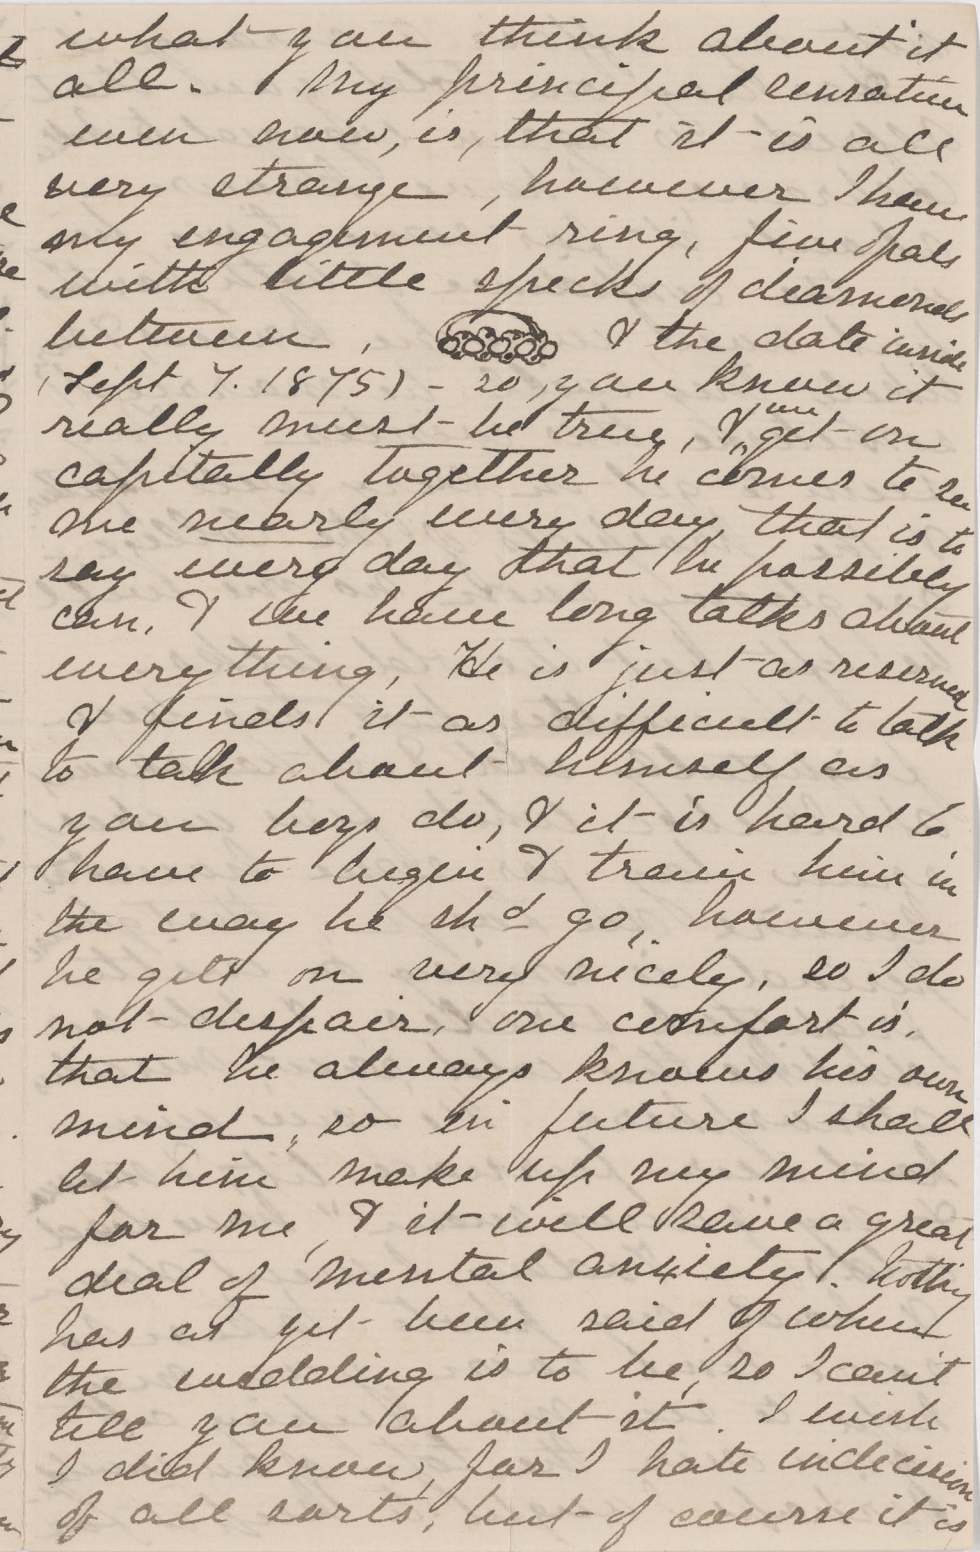 what you think about it
all. My principal sensation
even now, is, that it is all
very strange, however I have
my engagement ring, five opals
with little specks of diamonds
between, & the date inside
(Sept 7. 1875) - so, you know it
really must be true, & we get on
capitally together he comes to see
me nearly every day, that is to
say every day that he possibly
can, & we have long talks about
everything, He is just as reserved
& finds it as difficult to talk
to talk about himself as
you boys do, & it is hard to
have to begin & train him in
the way he shd go, however
he gets on very nicely, so I do
not despair, one comfort is,
that he always knows his own
mind, so in future I shall
let him make up my mind
for me, & it will save a great
deal of mental anxiety. Nothing
has as yet been said of when
the wedding is to be, so I can't
tell you about it. I wish
I did know, for I hate indecision
of all sorts, but of course it is